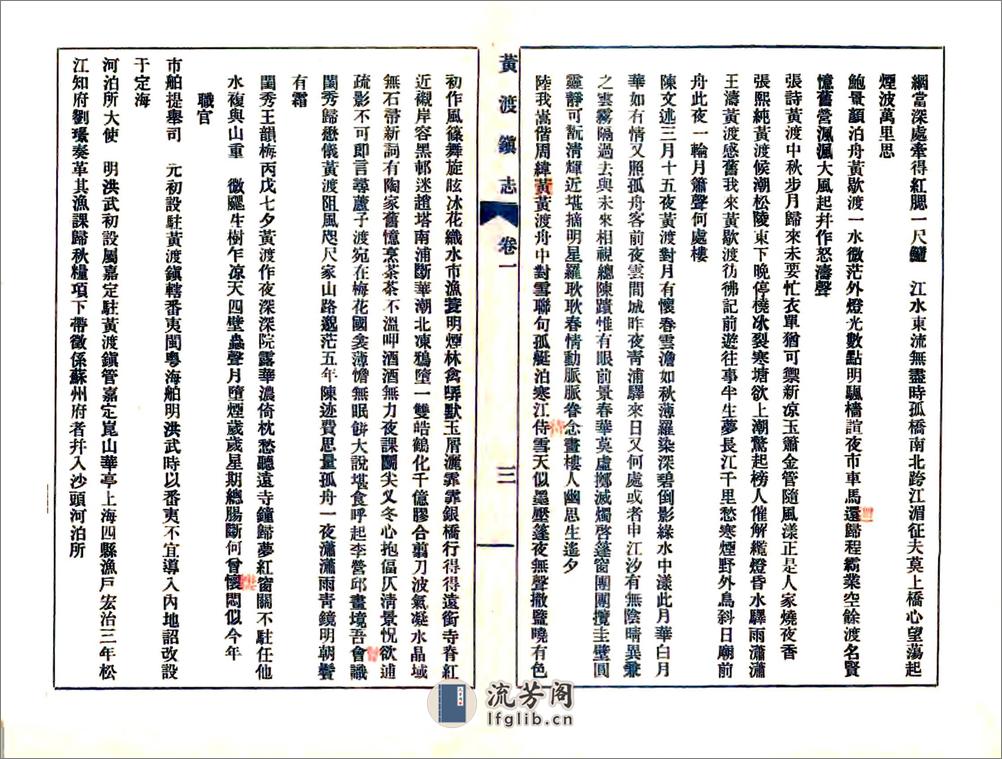 綱當深處牽得紅腮一尺鱸　江水東流無盡時孤橋南北跨江湄征夫莫上橋心望蕩起
煙波萬里思
鮑景顏泊舟黃歇渡一水微茫外燈光數點明颿檣諠夜市車馬還歸程霸業空餘渡名賢
憶舊營渢渢大風起幷作怒濤聲
張詩黃渡中秋步月歸來未要忙衣單猶可禦新凉玉簫金管隨風漾正是人家燒夜香
張熙純黃渡候潮松陵東下晚停橈冰裂寒塘欲上潮驚起榜人催解纜燈昏水驛雨瀟瀟
王濤黃渡感舊我來黃歇渡彷彿記前遊往事半生夢長江千里愁寒煙野外鳥斜日廟前
舟此夜一輪月簫聲何處樓
陳文述三月十五夜黃渡對月有懷春雲澹如秋薄羅染深碧倒影綠水中漾此月華白月
華如有情又照孤舟客前夜雲間城昨夜靑浦驛來日又何處或者申江汐有無陰晴異兼
之雲霧隔過去與未來相視總陳蹟惟有眼前景春華莫虛擲滅燭啓篷窗團團攬圭璧圓
靈靜可翫淸輝近堪摘明星羅耿耿春情動脈脈眷念畫樓人幽思生遙夕
陸我嵩偕周緯黃黃渡舟中對雪聯句孤艇泊寒江侍雪天似墨壓篷夜無聲撒鹽曉有色
待
黃渡鎭志
卷一
三
初作風篠舞旋眩冰花織水市漁蓑明煙林禽哢默玉屑灑霏霏銀橋行得得遠銜寺脊紅
近襯岸容黑邨迷趙塔南浦斷華潮北凍鴉墮一雙皓鶴化千億膠合翦刀波氣凝水晶域
無石帚新詞有陶家舊憶烹茶茶不溫呷酒酒無力夜課鬭尖叉冬心抱偪仄淸景怳欲逋
疏影不可卽言尋蘆子渡宛在梅花國衾薄憺無眠餠大說堪食呼起李營邱畫境吾會識
閨秀歸懋儀黃渡阻風咫尺家山路渺茫五年陳迹費思量孤舟一夜瀟瀟雨靑鏡明朝鬢
有霜
閨秀王韻梅丙戊七夕黃渡作夜深深院露華濃倚枕愁聽遠寺鐘歸夢紅窗關不駐任他
水複與山重　微颸生樹乍凉天四壁蟲聲月墮煙歲歲星期總腸斷何曾懷悶似今年
職官
市舶提擧司　元初設駐黃渡鎭轄番夷閩粵海舶明洪武時以番夷不宜導入內地詔改設
于定海
河泊所大使　明洪武初設屬嘉定駐黃渡鎭管嘉定崑山華亭上海四縣漁戶宏治三年松
江知府劉璟奏革其漁課歸秋糧項下帶徵係蘇州府者幷入沙頭河泊所
流芳阁
lfglib.cn